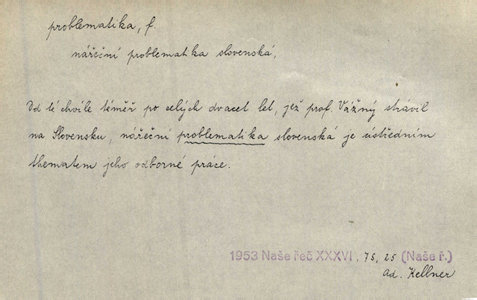 problematika, f.
nářeční problematika slovenská,
Od té chvíle téměř po celých dvacet let, jež prof. Vážný strávil
na Slovensku, nářeční problematika slovenská je ústředním
thematem jeho odborné práce.
1953 Naše řeč XXXVI, 75, 25 (Naše ř.)
Ad. Kellner